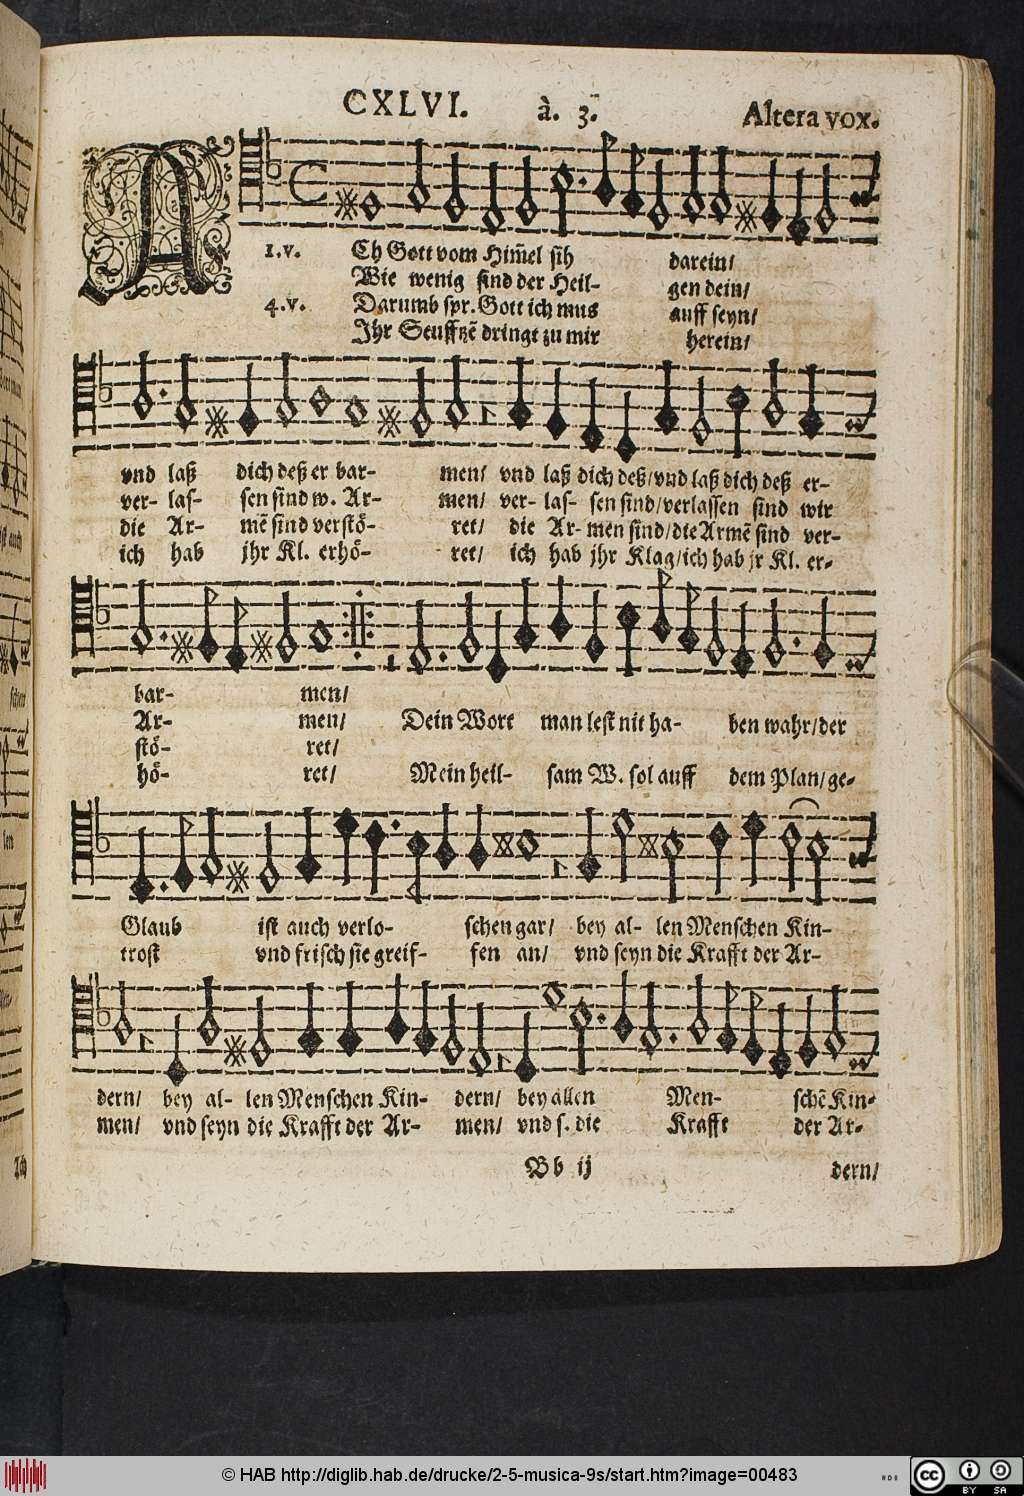 CXLVI. à. 3. Altera vox.
A
1.v. Ch Gott vom Him̃el sih darein/
Wie wenig sind der Heil- gen dein/
4.v. Darumb spr. Gott ich mus auff seyn/
Ihr Seufftzẽ dringt zu mir herein/
vnd laß dich deß er bar- men/ vnd laß dich deß/vnd laß dich deß er-
ver- las- sen sind w. Ar- men/ ver- las- sen sind/verlassen sind wir
die Ar- mẽ sind verstö- ret/ die Ar- men sind/die Armẽ sind ver-
ich hab jhr Kl. erhö- ret/ ich hab jhr Klag/ich hab jr Kl. er-
bar- men/
Ar- men/ Dein Wort man lest nit ha- ben wahr/der
stö- ret/
hö- ret/ Mein heil- sam W. sol auff dem Plan/ge-
Glaub ist auch verlo- schen gar/ bey al- len Menschen Kin-
trost vnd frisch sie greif- fen an/ vnd seyn die Krafft der Ar-
dern/ bey al- len Menschen Kin- dern/ bey allen Men- schẽ Kin-
men/ vnd seyn die Krafft der Ar- men/ vnd s. die Krafft der Ar-
Bb ij dern/
© HAB http://diglib.hab.de/drucke/2-5-musica-9s/start.htm?image=00483
cc BY SA